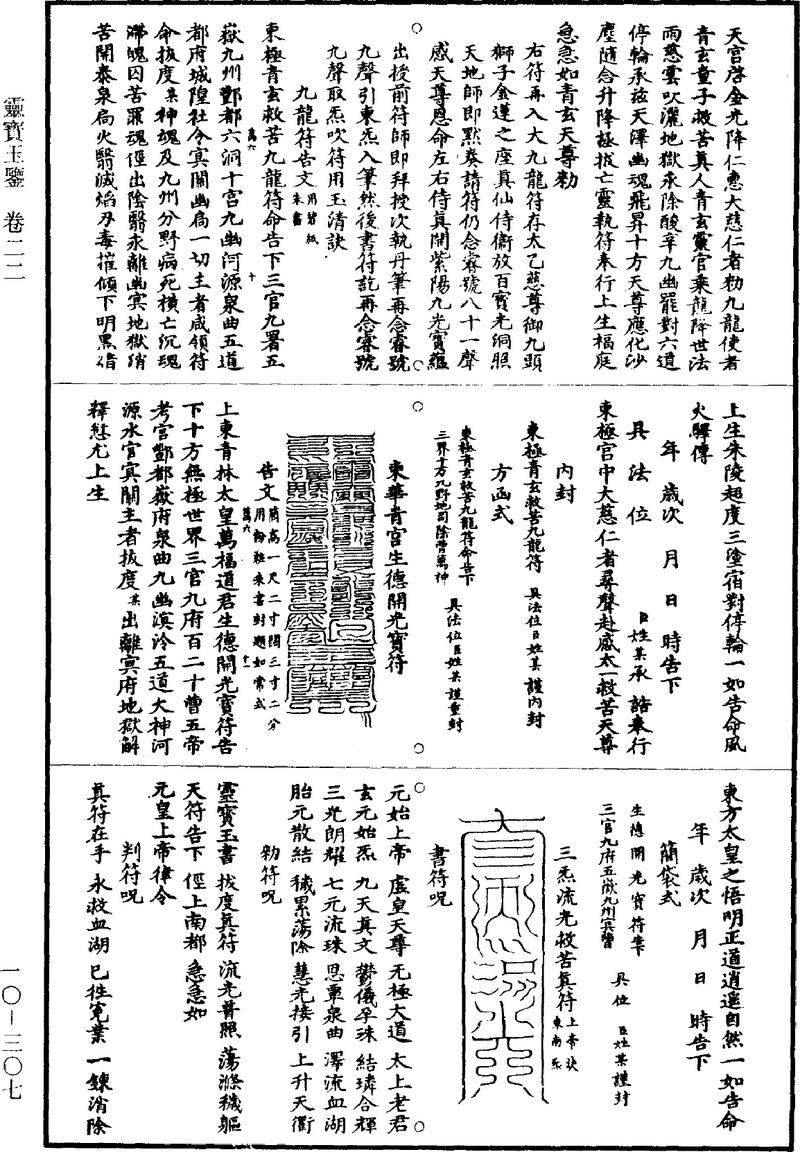 靈寶玉鑒 卷二二
一〇—三〇七
天宮啓金光降仁惠大慈仁者勑九龍使者
青玄童子救苦真人青玄靈官乘龍降世法
雨慈雲吹灑地獄永除酸辛九幽罷對六道
停輪承茲天澤幽魂飛昇十方天尊應化沙
塵隨念升降極拔亡靈執符奉行上生福庭
急急如青玄天尊勑
右符再入大九龍符存太乙慈尊御九頭
獅子金蓮之座真仙侍衛放百寶光洞照
天地師即默奏請符仍念睿號八十一聲
感天尊恩命左右侍真開紫陽九光寶蘊
出授前符師即拜授次執丹筆再念睿號
九聲引東炁入筆然後書符訖再念睿號
九聲取炁吹符用玉清訣
九龍符告文用碧紙朱書
東極青玄救苦九龍符命告下三官九署五
嶽九州酆都六洞十宮九幽河源泉曲五道
都府城隍社令冥關幽扃一切主者咸領符
命拔度某神魂及九州分野病死橫亡沉魂
滯魄囚苦羅魂徑出陰翳永離幽冥地獄消
苦開泰泉扃火翳滅焰刃毒摧傾下明黑渚
萬六
十
上生朱陵超度三塗宿對停輪一如告命風
火驛傳
年 歲次 月 日 時告下
具 法 位 臣姓某承 誥奉行
東極宮中大慈仁者尋聲赴感太一救苦天尊
內封
東極青玄救苦九龍符 具法位臣姓某 謹內封
方函式
東極青玄救苦九龍符命告下
三界十方九野地司陰曹萬神 具法位臣姓某謹重封
東華青宮生德開光寶符
告文簡高一尺二寸闊三寸二分
用粉粧朱書封題如常式
萬六
十一
上東青林太皇萬福道君生德開光寶符告
下十方無極世界三官九府百二十曹五帝
考官酆都嶽府泉曲九幽溟泠五道大神河
源水官冥關主者拔度某出離冥府地獄解
釋愆尤上生
東方太皇之悟明正道逍遙自然一如告命
年 歲次 月 日 時告下
簡袋式
生德開光寶符告
三官九府五嶽九州冥曹 具位 臣姓某謹封
三炁流光救苦真符上帝訣
東南炁
書符呪
元始上帝 虛皇天尊 无極大道 太上老君
玄元始炁 九天真文 鬱儀孕珠 結璘合輝
三光朗耀 七元流珠 恩覃泉曲 澤流血湖
胎元散結 穢累蕩除 慧光接引 上升天衢
勑符呪
靈寶玉書 拔度真符 流光普照 蕩滌穢軀
天符告下 徑上南都 急急如
元皇上帝律令
判符呪
真符在手 永救血湖 已往冤業 一鍊消除